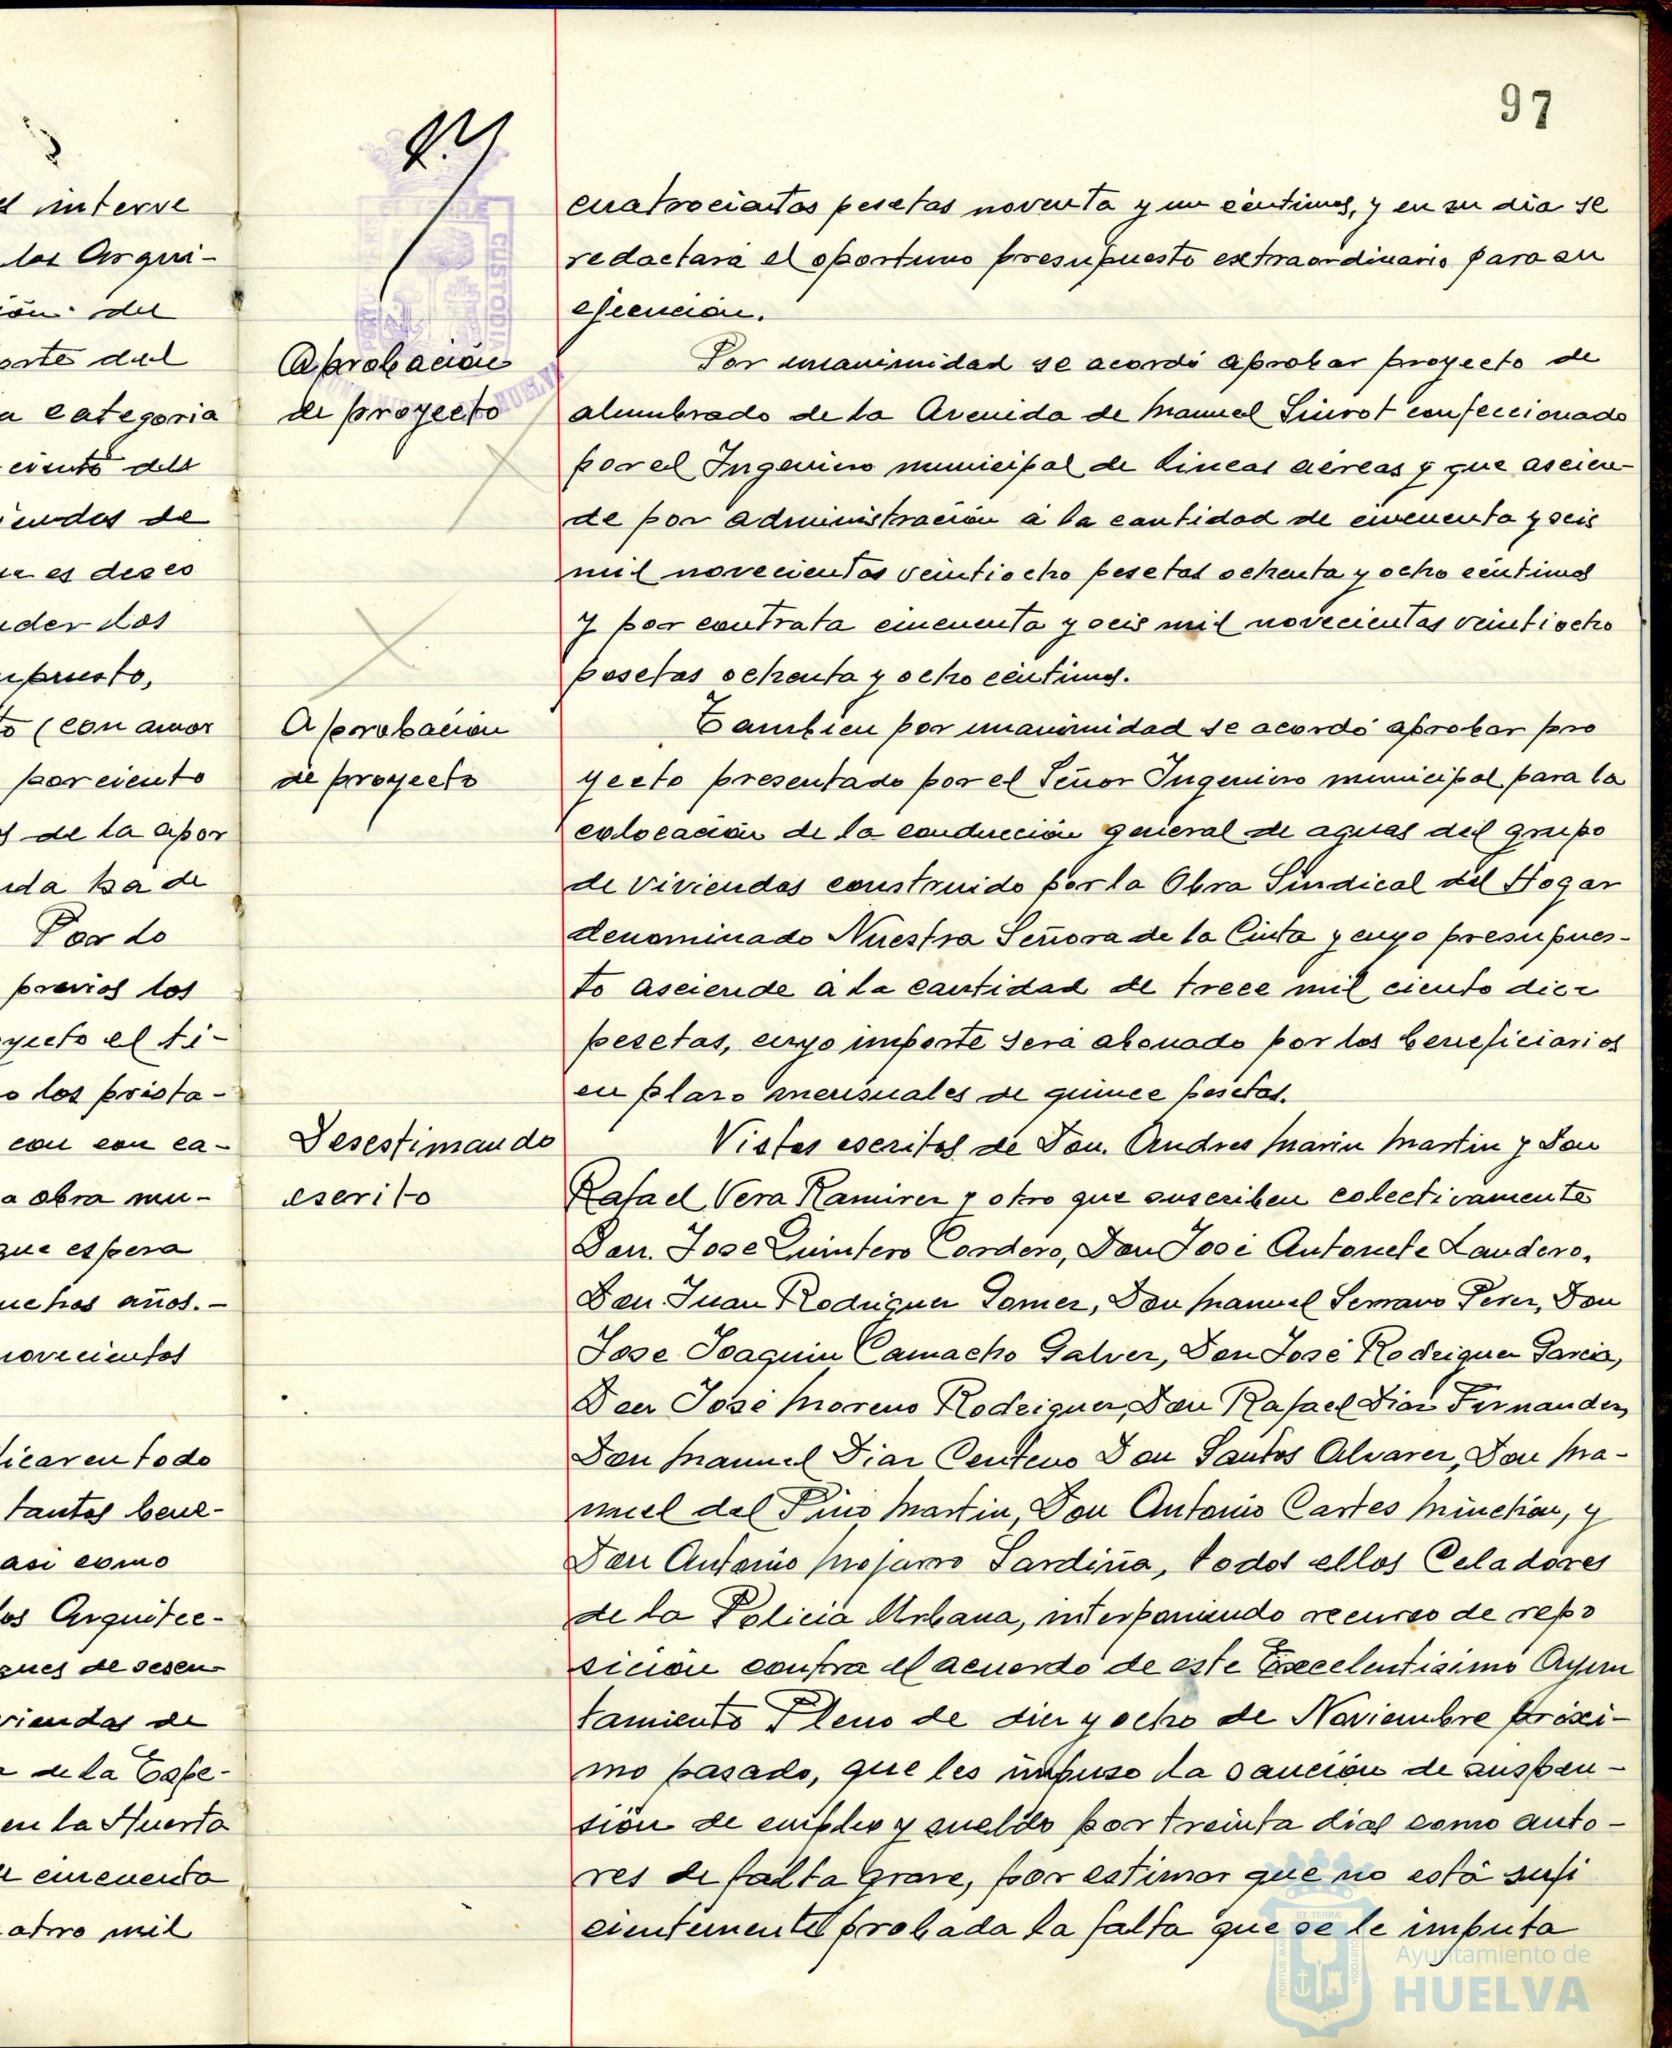 97
cuatrocientas pesetas noventa y un céntimos, y en su dia se
redactará el oportuno presupuesto extraordinario para su
ejecución.
Aprobación
de proyecto
Por unanimidad se acordó aprobar proyecto de
alumbrado de la Avenida de Manuel Siurot confeccionado
por el Ingeniero municipal de lineas aéreas y que ascien-
de por administración á la cantidad de cincuenta y seis
mil novecientas veintiocho pesetas ochenta y ocho céntimos
y por contrata cincuenta y seis mil novecientas veintiocho
pesetas ochenta y ocho céntimos.
Aprobación
de proyecto
Tambien por unanimidad se acordó aprobar pro
yecto presentado por el Señor Ingeniero municipal para la
colocación de la conducción general de aguas del grupo
de viviendas construido por la Obra Sindical del Hogar
denominado Nuestra Señora de la Cinta y cuyo presupues-
to asciende á la cantidad de trece mil ciento diez
pesetas, cuyo importe será abonado por los beneficiarios
en plazo mensuales de quince pesetas.
Desestimando
escrito
Vistos escritos de Don. Andres Marin Martin y Don
Rafael Vera Ramirez y otro que suscriben colectivamente
Don. Jose Quintero Cordero, Don José Landero,
Don Juan Rodriguez Gomez, Don Manuel Serrano Perez, Don
Jose Joaquin Camacho Galvez, Don José Rodriguez Garcia,
Don José Moreno Rodriguez, Don Rafael Diaz Fernandez,
Don Manuel Diaz Centeno Don Santos Alvarez, Don Ma-
nuel del Pino Martin, Don Antonio Cartes Minchón, y
Don Antonio Mojarro Sardiña, todos ellos Celadores
de la Policia Urbana, interponiendo recurso de repo
sición contra el acuerdo de este Excelentisimo Ayun
tamiento Pleno de diez y ocho de Noviembre próxi-
mo pasado, que les impuso la sanción de suspen-
sión de empleo y sueldo por treinta dias como auto-
res de falta grave, por estimar que no está sufi
cientemente probada la falta que se le imputa
interve
los Arqui-
ión del
orte del
a categoria
ciento del
iendas de
es deseo
der los
upuesto,
to (con amor
por ciento
s de la apor
da ha de
Por lo
previos los
yecto el ti-
o los presta-
con con ca-
a obra mu-
que espera
uchos años.-
novecientos
licar en todo
tantos bene-
asi como
los Arquitec-
ques de sesen
viendas de
de la Espe-
en la Huerta
cincuenta
atro mil
Ayuntamiento de
HUELVA